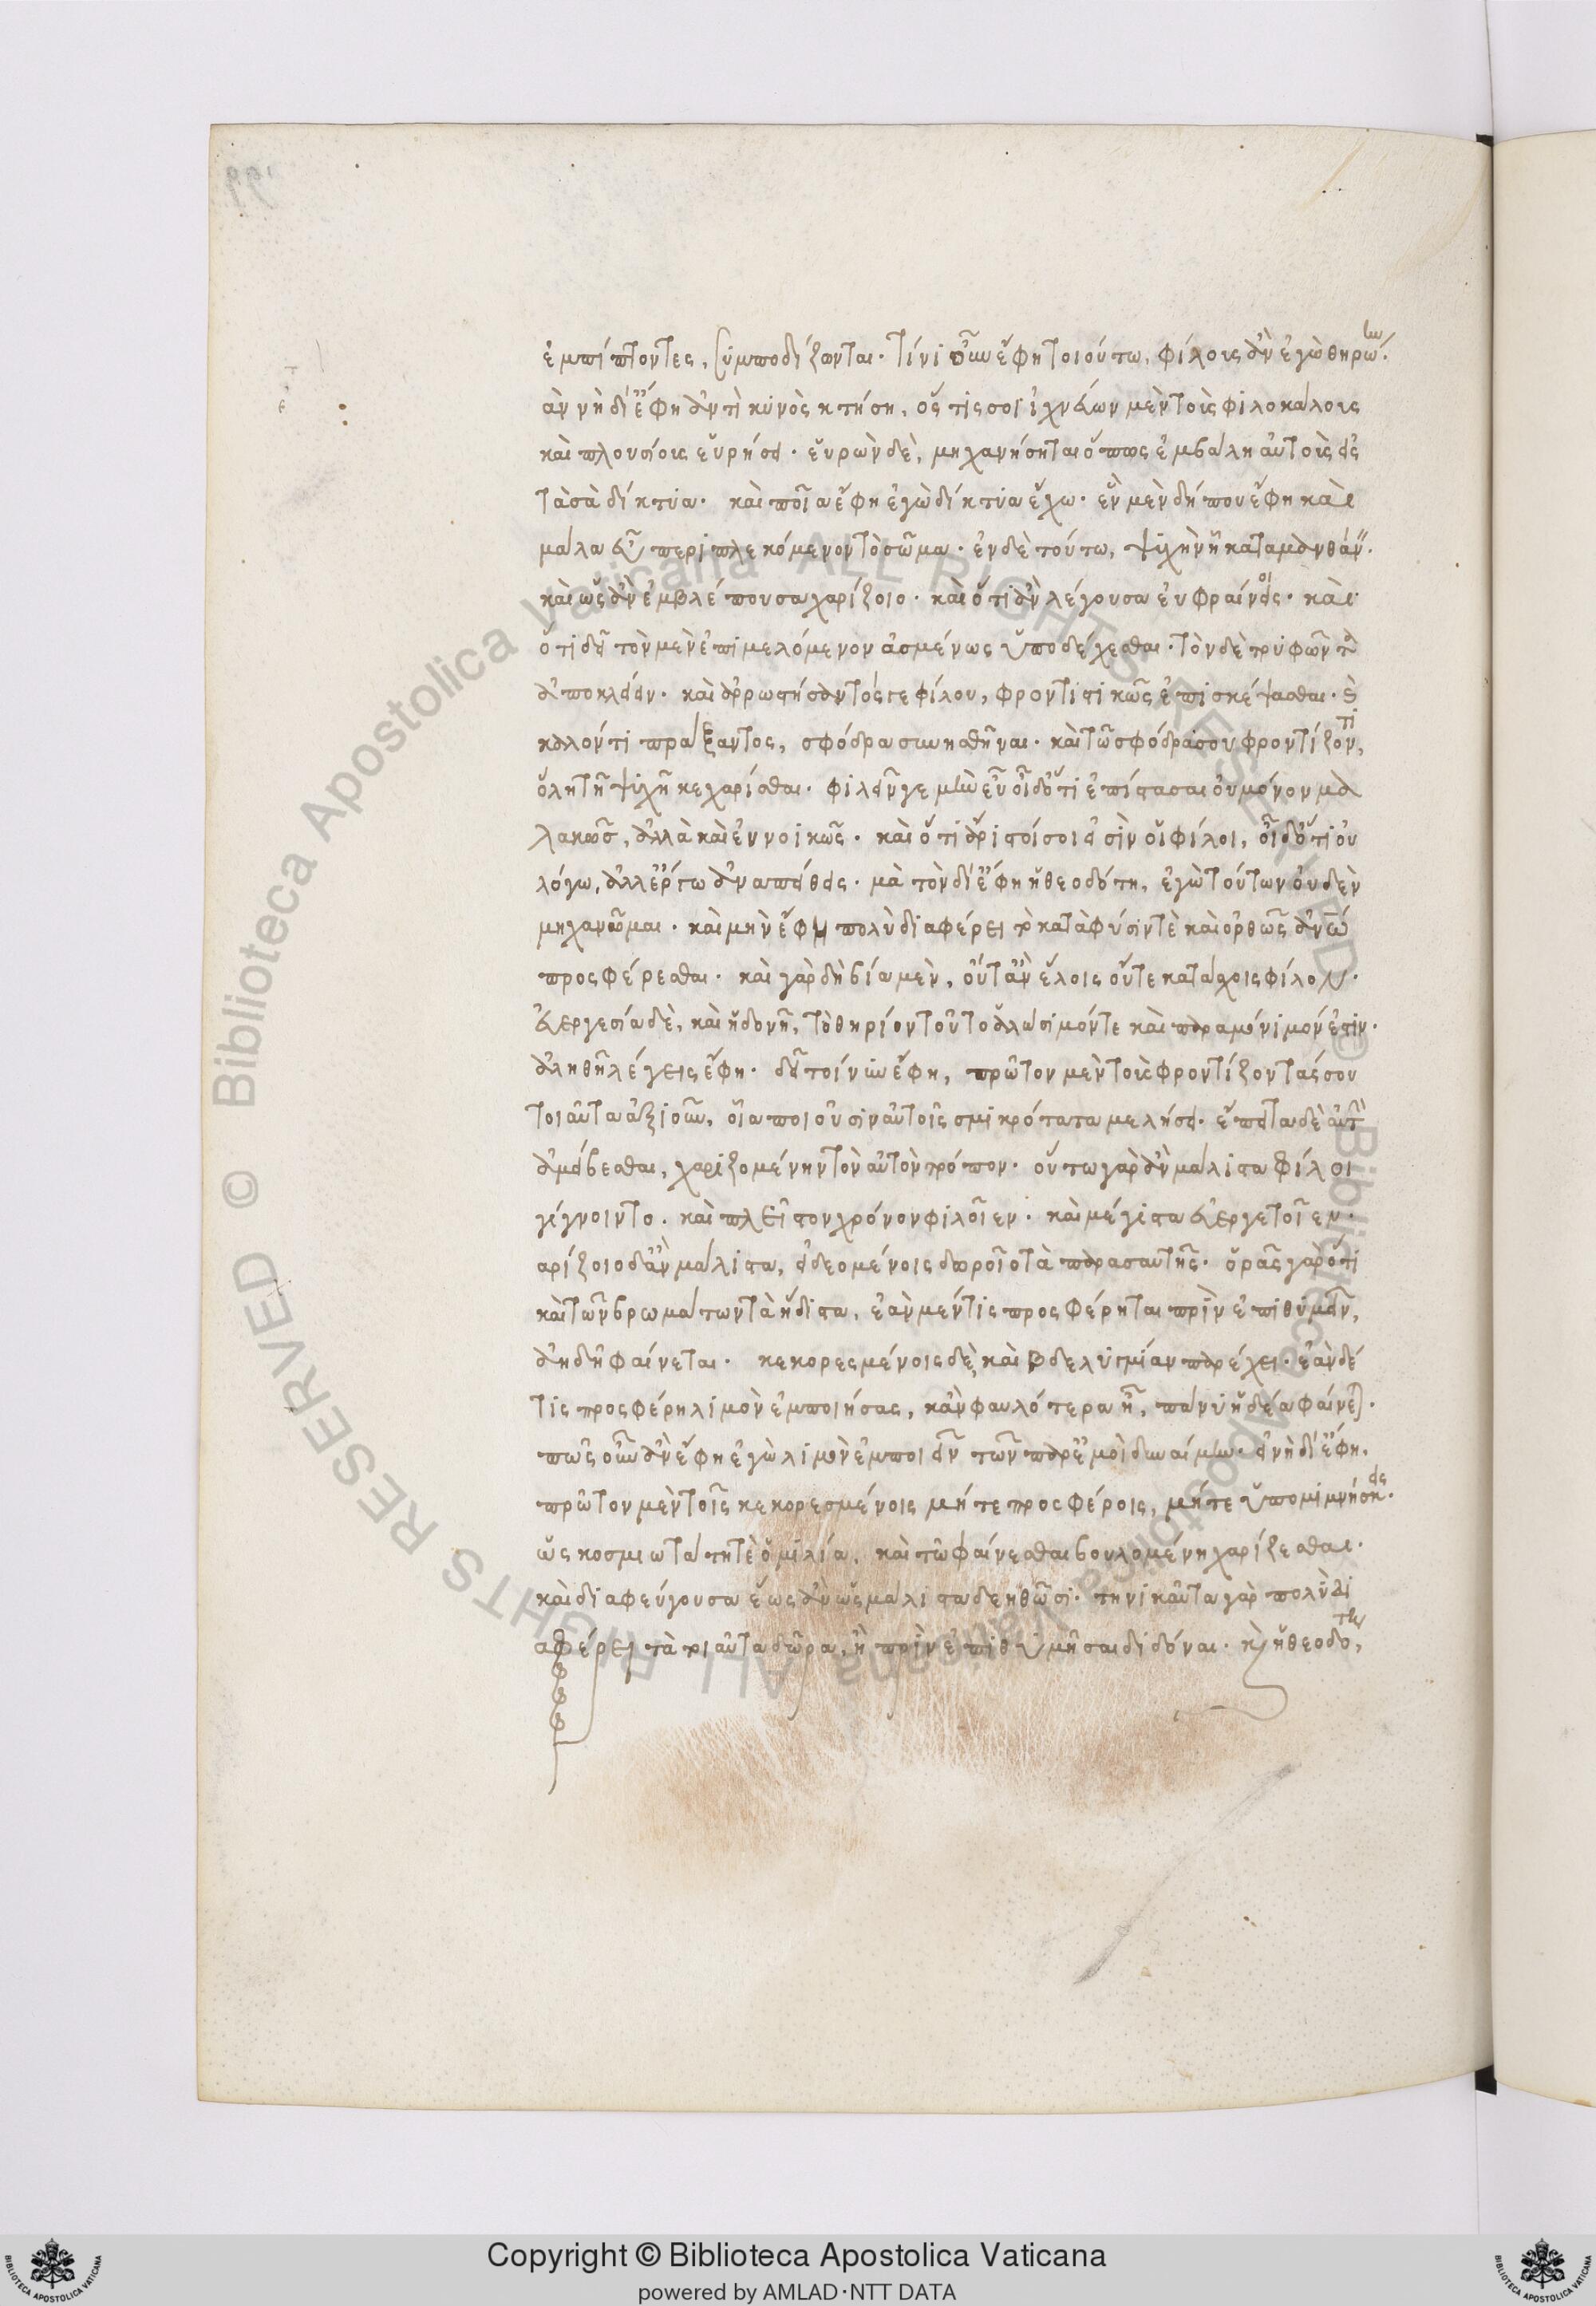 ἐμπίπτοντες, συμποδίζονται. τίνι οὖν ἔφη τοιούτω, φίλους ἂν ἐγὼ θηρώην.
ἂν νὴ δί' ἔφη ἀντὶ κυνὸς κτήση, ὅς τις σοι ἰχνεύων μὲν τοὺς φιλοκάλους
καὶ πλουσίους εὑρήσει. εὑρὼν δὲ, μηχανήσηται ὅπως ἐμβάλη αὐτοὺς εἰς
τὰ σὰ δίκτυα. καὶ ποῖα ἔφη ἐγὼ δίκτυα ἔχω. ἓν μὲν δήπου ἔφη καὶ
μάλα εὖ περιπλεκόμενον τὸ σῶμα. ἐν δὲ τούτω, ψυχὴν ἧ καταμανθάνεις
καὶ ὡς ἂν ἐμβλέπουσα χαρίζοιο. καὶ ὅτι ἂν λέγουσα εὐφραίνοις. καὶ
ὅτι δεῖ τὸν μὲν ἐπιμελόμενον ἀσμένως ὑποδέχεσθαι. τὸν δὲ τρυφῶντα
ἀποκλείειν. καὶ ἀρρωστήσαντός γε φίλου, φροντιστικῶς ἐπισκέψασθαι. καὶ
καλόν τι πράξαντος, σφόδρα συνησθῆναι. καὶ τῶ σφόδρα σου φροντίζοντι,
ὅλη τῆ ψυχῆ κεχαρίσθαι. φιλεῖν γε μὴν εὖ οἶδ' ὅτι ἐπίστασαι οὐ μόνον μα
λακῶς, ἀλλὰ καὶ εὐνοϊκῶς. καὶ ὅτι ἀριστοί σοι εἰσὶν οἱ φίλοι, οἶδ' ὅτι οὐ
λόγω, ἀλλ' ἔργω ἀναπείθεις. μὰ τὸν δί' ἔφη ἡ θεοδότη, ἐγὼ τούτων οὐδὲν
μηχανῶμαι. καὶ μὴν ἔφη πολὺ διαφέρει τὸ κατὰ φύσιν τὲ καὶ ὀρθῶς ἀνθρώπω
προσφέρεσθαι. καὶ γὰρ δὴ βία μὲν, οὔτ' ἂν ἕλοις οὔτε κατάσχοις φίλον.
εὐεργεσία δὲ, καὶ ἡδονῆ, τὸ θηρίον τοῦτο ἁλώσιμόν τε καὶ παραμόνιμόν ἐστιν.
ἀληθῆ λέγεις ἔφη. δεῖ τοίνυν ἔφη, πρῶτον μὲν τοὺς φροντίζοντάς σου
τοιαῦτα ἀξιοῦν, οἷα ποιοῦσιν αὐτοῖς σμικρότατα μελήσει. ἔπειτα δὲ αὐτὴν
ἀμείβεσθαι, χαριζομένην τὸν αὐτὸν τρόπον. οὕτω γὰρ ἂν μάλιστα φίλοι
γίγνοιντο. καὶ πλεῖστον χρόνον φιλοῖεν. καὶ μέγιστα εὐεργετοῖεν.
αρίζοιο δ' ἂν μάλιστα, εἰ δεομένοις δωροῖο τὰ παρὰ σαυτῆς. ὁρᾶς γὰρ ὅτι
καὶ τῶν βρωμάτων τὰ ἥδιστα, ἐὰν μέν τις προσφέρηται πρὶν ἐπιθυμεῖν,
ἀηδῆ φαίνεται. κεκορεσμένοις δὲ, καὶ βδελυγμίαν παρέχει. ἐὰν δέ
τις προσφέρη λιμὸν ἐμποιήσας, κἂν φαυλότερα ἧ, πάνυ ἡδέα φαίνεται.
πῶς οὖν ἂν ἔφη ἐγὼ λιμὸν ἐμποιεῖν τῶν παρ' ἐμοὶ δυναίμην. εἰ νὴ δί' ἔφη.
πρῶτον μὲν τοῖς κεκορεσμένοις μήτε προσφέροις, μήτε ὑπομιμνήσκεις.
ὡς κοσμιωτάτη τὲ ὁμιλία, καὶ τῶ φαίνεσθαι βουλομένη χαρίζεσθαι.
καὶ διαφεύγουσα ἕως ἂν ὡς μάλιστα δεηθῶσι. τηνικαῦτα γὰρ πολὺ δι
αφέρει τὰ τοιαῦτα δῶρα, ἢ πρὶν ἐπιθυμῆσαι διδόναι. καὶ ἡ θεοδότη,